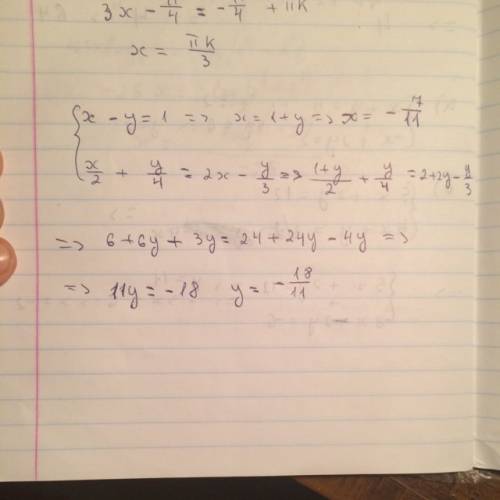 3x - π/4 = - π/4 + πk
x = πk/3
{ x - y = 1 => x = 1 + y => x = - 7/11
x/2 + y/4 = 2x - y/3 => (1+y)/2 + y/4 = 2+2y - y/3
=> 6 + 6y + 3y = 24 + 24y - 4y =>
=> 11y = -18 y = - 18/11